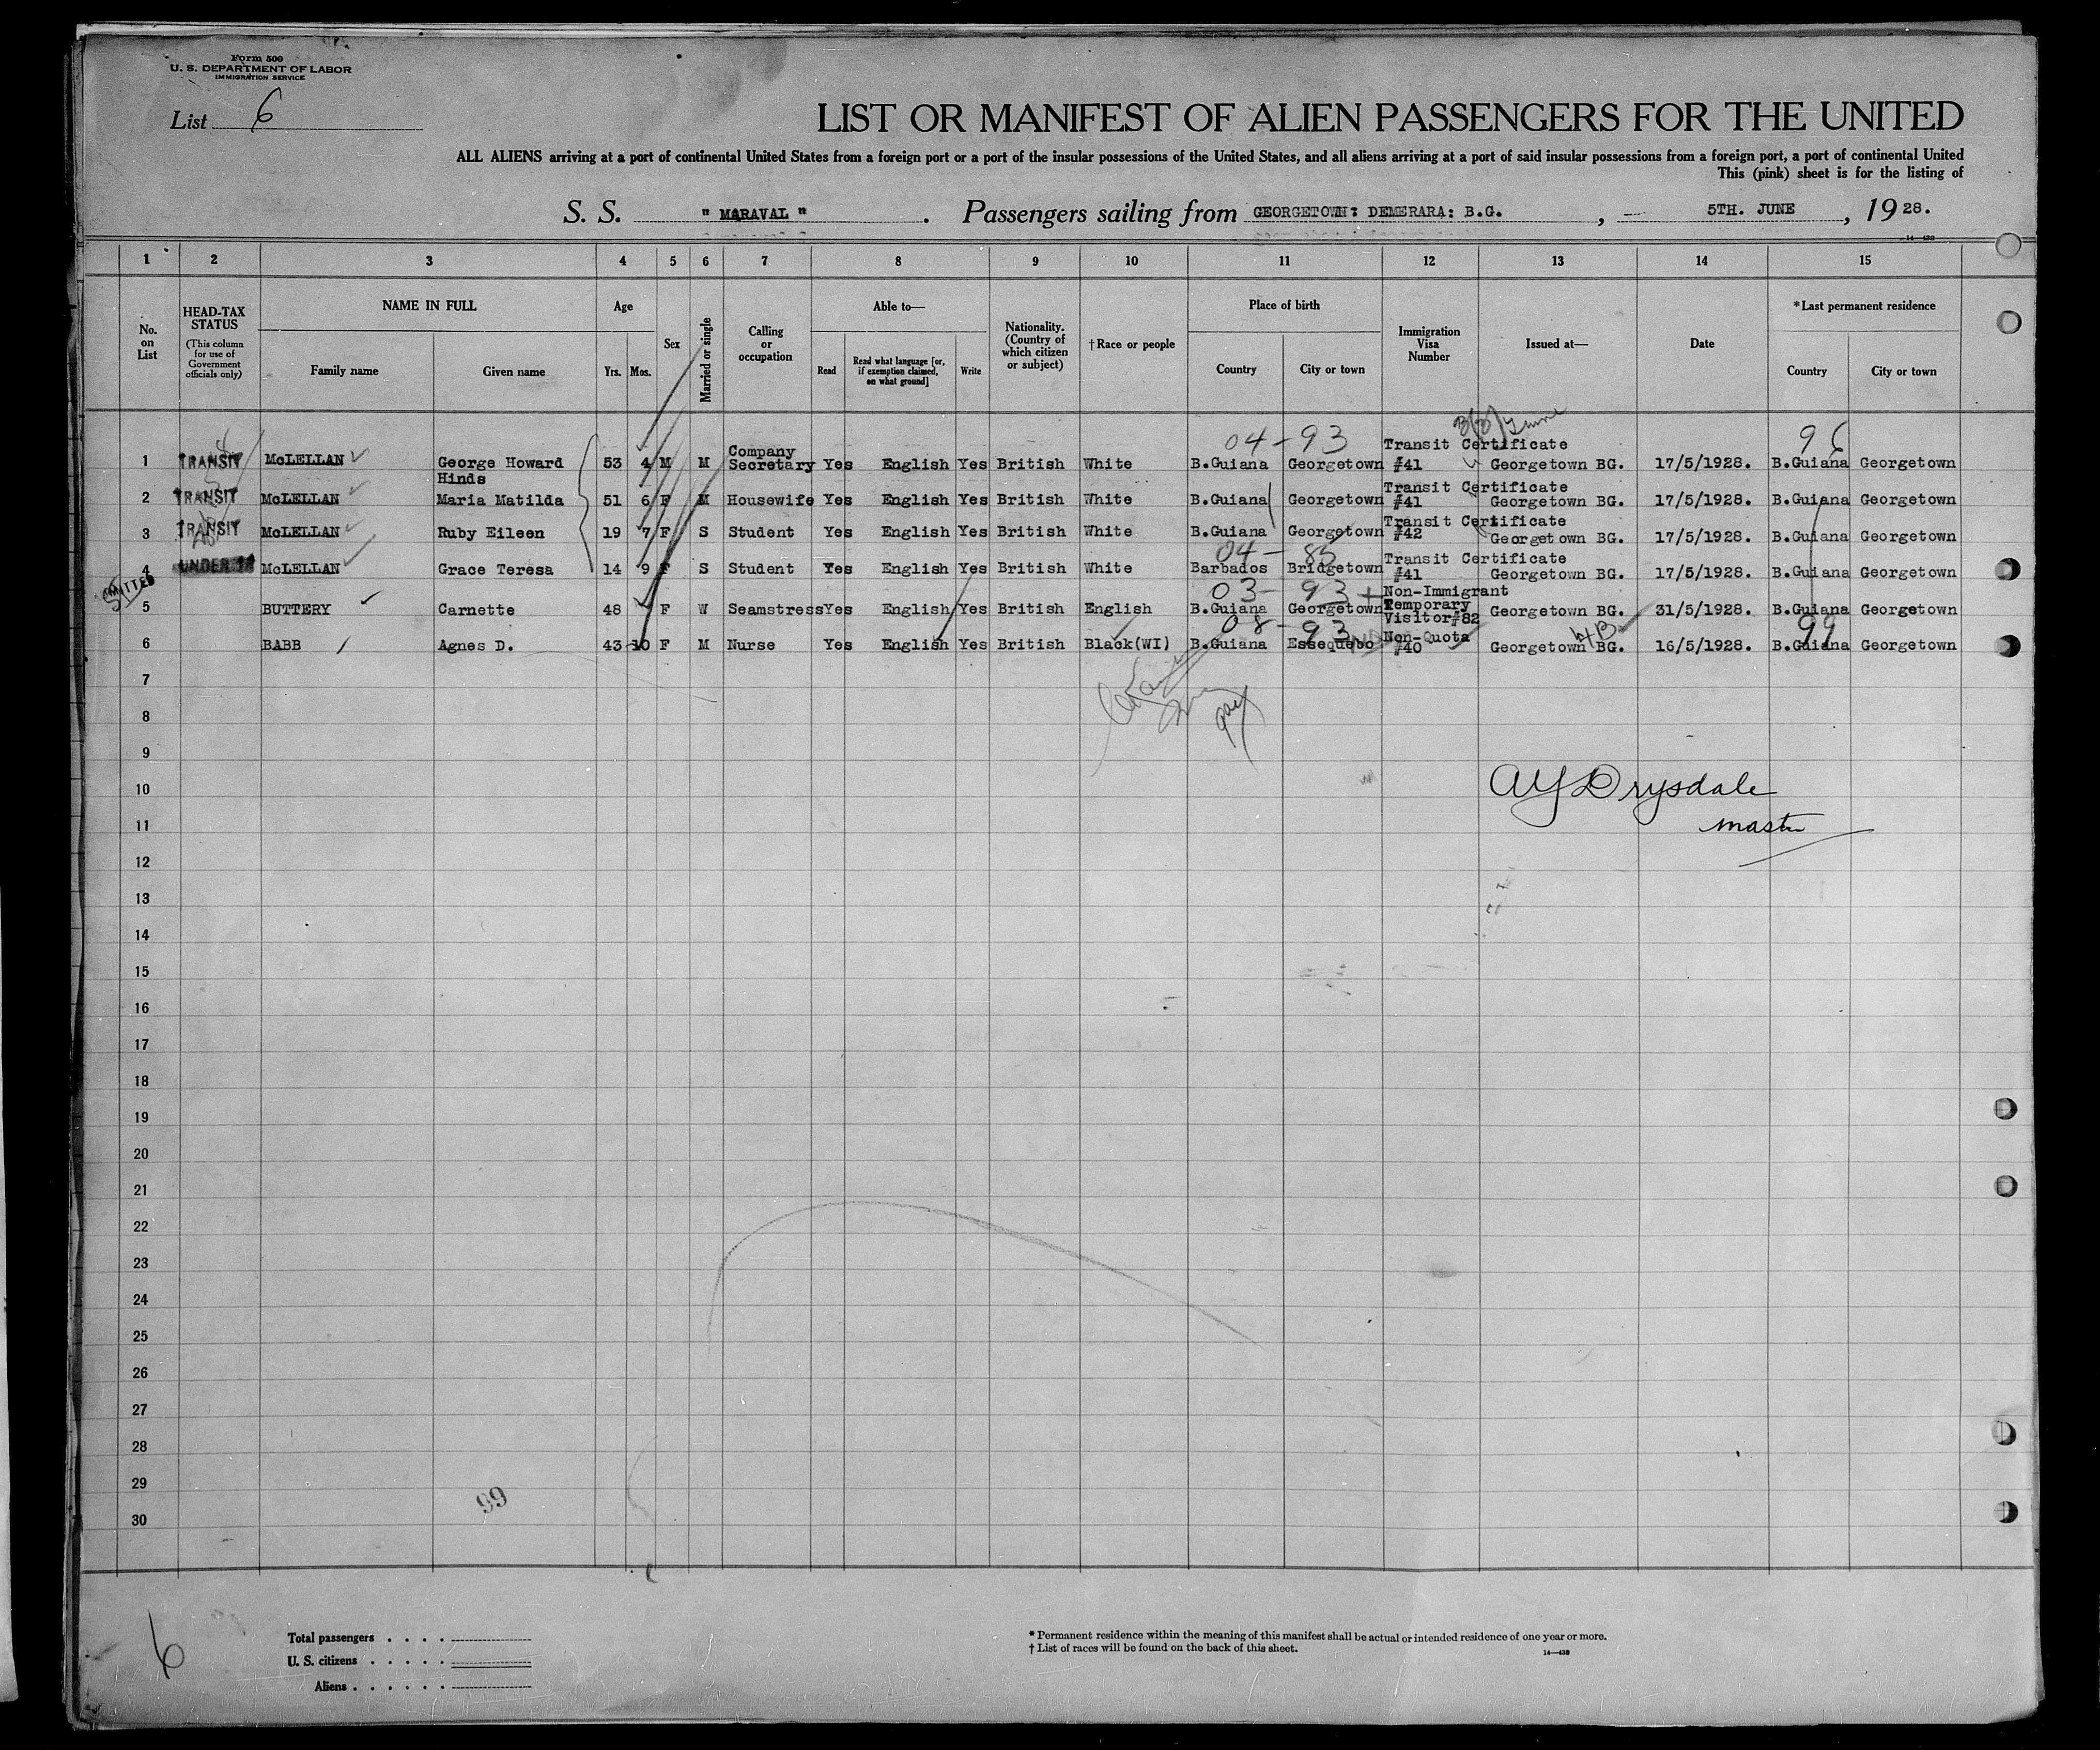 Form 500
U. S. DEPARTMENT OF LABOR
IMMIGRATION SERVICE
List 6
LIST OR MANIFEST OF ALIEN PASSENGERS FOR THE UNITED
ALL ALIENS arriving at a port of continental United States from a foreign port or a port of the insular possessions of the United States, and all aliens arriving at a port of said insular possessions from a foreign port, a port of continental United
This (pink) sheet is for the listing of
S. S. " MARAVAL " . Passengers sailing from GEORGETOWN: DEMERARA: B.G. , 5TH. JUNE , 19 28.
14—430
1 2 3 4 5 6 7 8 9 10 11 12 13 14 15
No. on List
HEAD-TAX STATUS
(This column for use of Government officials only)
NAME IN FULL
Family name
Given name
Age
Yrs. Mos.
Sex
Married or single
Calling or occupation
Able to—
Read
Read what language [or, if exemption claimed, on what ground]
Write
Nationality. (Country of which citizen or subject)
†Race or people
Place of birth
Country
City or town
Immigration Visa Number
Issued at—
Date
*Last permanent residence
Country
City or town
04-93 96
1 TRANSIT McLELLAN George Howard Hinds 53 4 M M Company Secretary Yes English Yes British White B.Guiana Georgetown Transit Certificate #41 Georgetown BG. 17/5/1928. B.Guiana Georgetown
2 TRANSIT McLELLAN Maria Matilda 51 6 F M Housewife Yes English Yes British White B.Guiana Georgetown Transit Certificate #41 Georgetown BG. 17/5/1928. B.Guiana Georgetown
3 TRANSIT McLELLAN Ruby Eileen 19 7 F S Student Yes English Yes British White B.Guiana Georgetown Transit Certificate #42 Georgetown BG. 17/5/1928. B.Guiana Georgetown
04-85
4 UNDER 16 McLELLAN Grace Teresa 14 9 F S Student Yes English Yes British White Barbados Bridgetown Transit Certificate #41 Georgetown BG. 17/5/1928. B.Guiana Georgetown
03-93
5 BUTTERY Carnette 48 7 F W Seamstress Yes English Yes British English B.Guiana Georgetown Non-Immigrant Temporary Visitor#82 Georgetown BG. 31/5/1928. B.Guiana Georgetown
08-93 99
6 BABB Agnes D. 43 10 F M Nurse Yes English Yes British Black(WI) B.Guiana Essequebo Non-Quota #40 Georgetown BG. 16/5/1928. B.Guiana Georgetown
7
8
9
10
Drysdale
11
master
12
13
14
15
16
17
18
19
20
21
22
23
24
25
26
27
28
29
99
30
6
Total passengers . . . .
U. S. citizens . . . . .
Aliens . . . . . .
* Permanent residence within the meaning of this manifest shall be actual or intended residence of one year or more.
† List of races will be found on the back of this sheet.
14—430